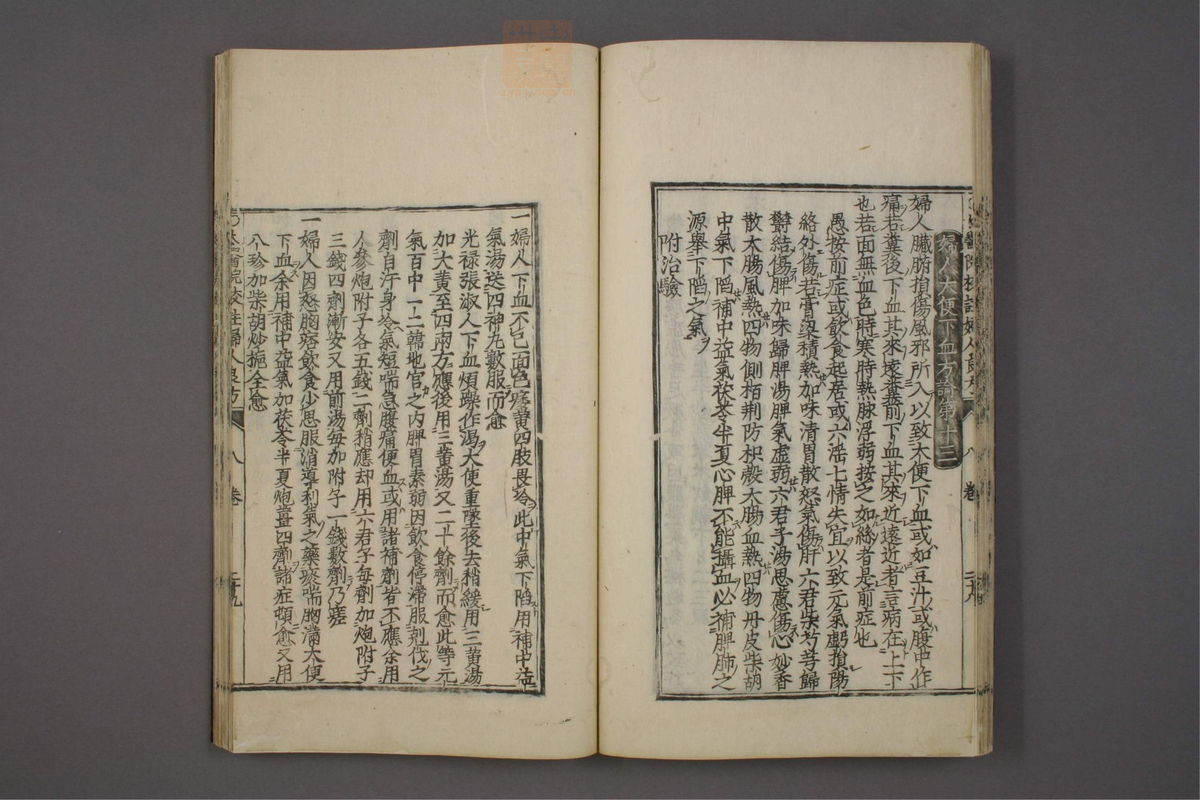 太醫院校註婦人良方
八 卷
婦人大便下血方論第十三
婦人臟腑損傷風邪所入以致大便下血或如豆汁或腹中作
痛若糞後下血其來遠糞前下血其來近遠近者言病在上下
也若面無血色時寒時熱脉浮弱按之如絲者是前症也
愚按前症或飲食起居或六淫七情失宜以致元氣虧損陽
絡外傷若膏粱積熱加味清胃散怒氣傷肝六君柴芍芎歸
鬱結傷脾加味歸脾湯脾氣虛弱六君子湯思慮傷心妙香
散大腸風熱四物側栢荆防枳殼大腸血熱四物丹皮柴胡
中氣下陷補中益氣茯苓半夏心脾不能攝血必補脾肺之
源舉下陷之氣
附治驗
一婦人下血不已面色痿黃四肢畏冷此中氣下陷用補中益
氣湯送四神丸數服而愈
光祿張淑人下血煩躁作渴大便重墜後去稍緩用三黃湯
加大黃至四兩方應後用三黃湯又二十餘劑而愈此等元
氣百中一二韓地官之內脾胃素弱因飲食停滯服剋伐之
劑自汗身冷氣短喘急腹痛便血或用諸補劑皆不應余用
人參炮附子各五錢二劑稍應却用六君子每劑加炮附子
三錢四劑漸安又用前湯每加附子一錢數劑乃瘥
一婦人因怒胸痞飲食少思服消導利氣之藥痰喘胸滿大便
下血余用補中益氣加茯苓半夏炮薑四劑諸症頓愈又用
八珍加柴胡炒梔全愈
太醫院校註婦人良方
八 卷
二十九